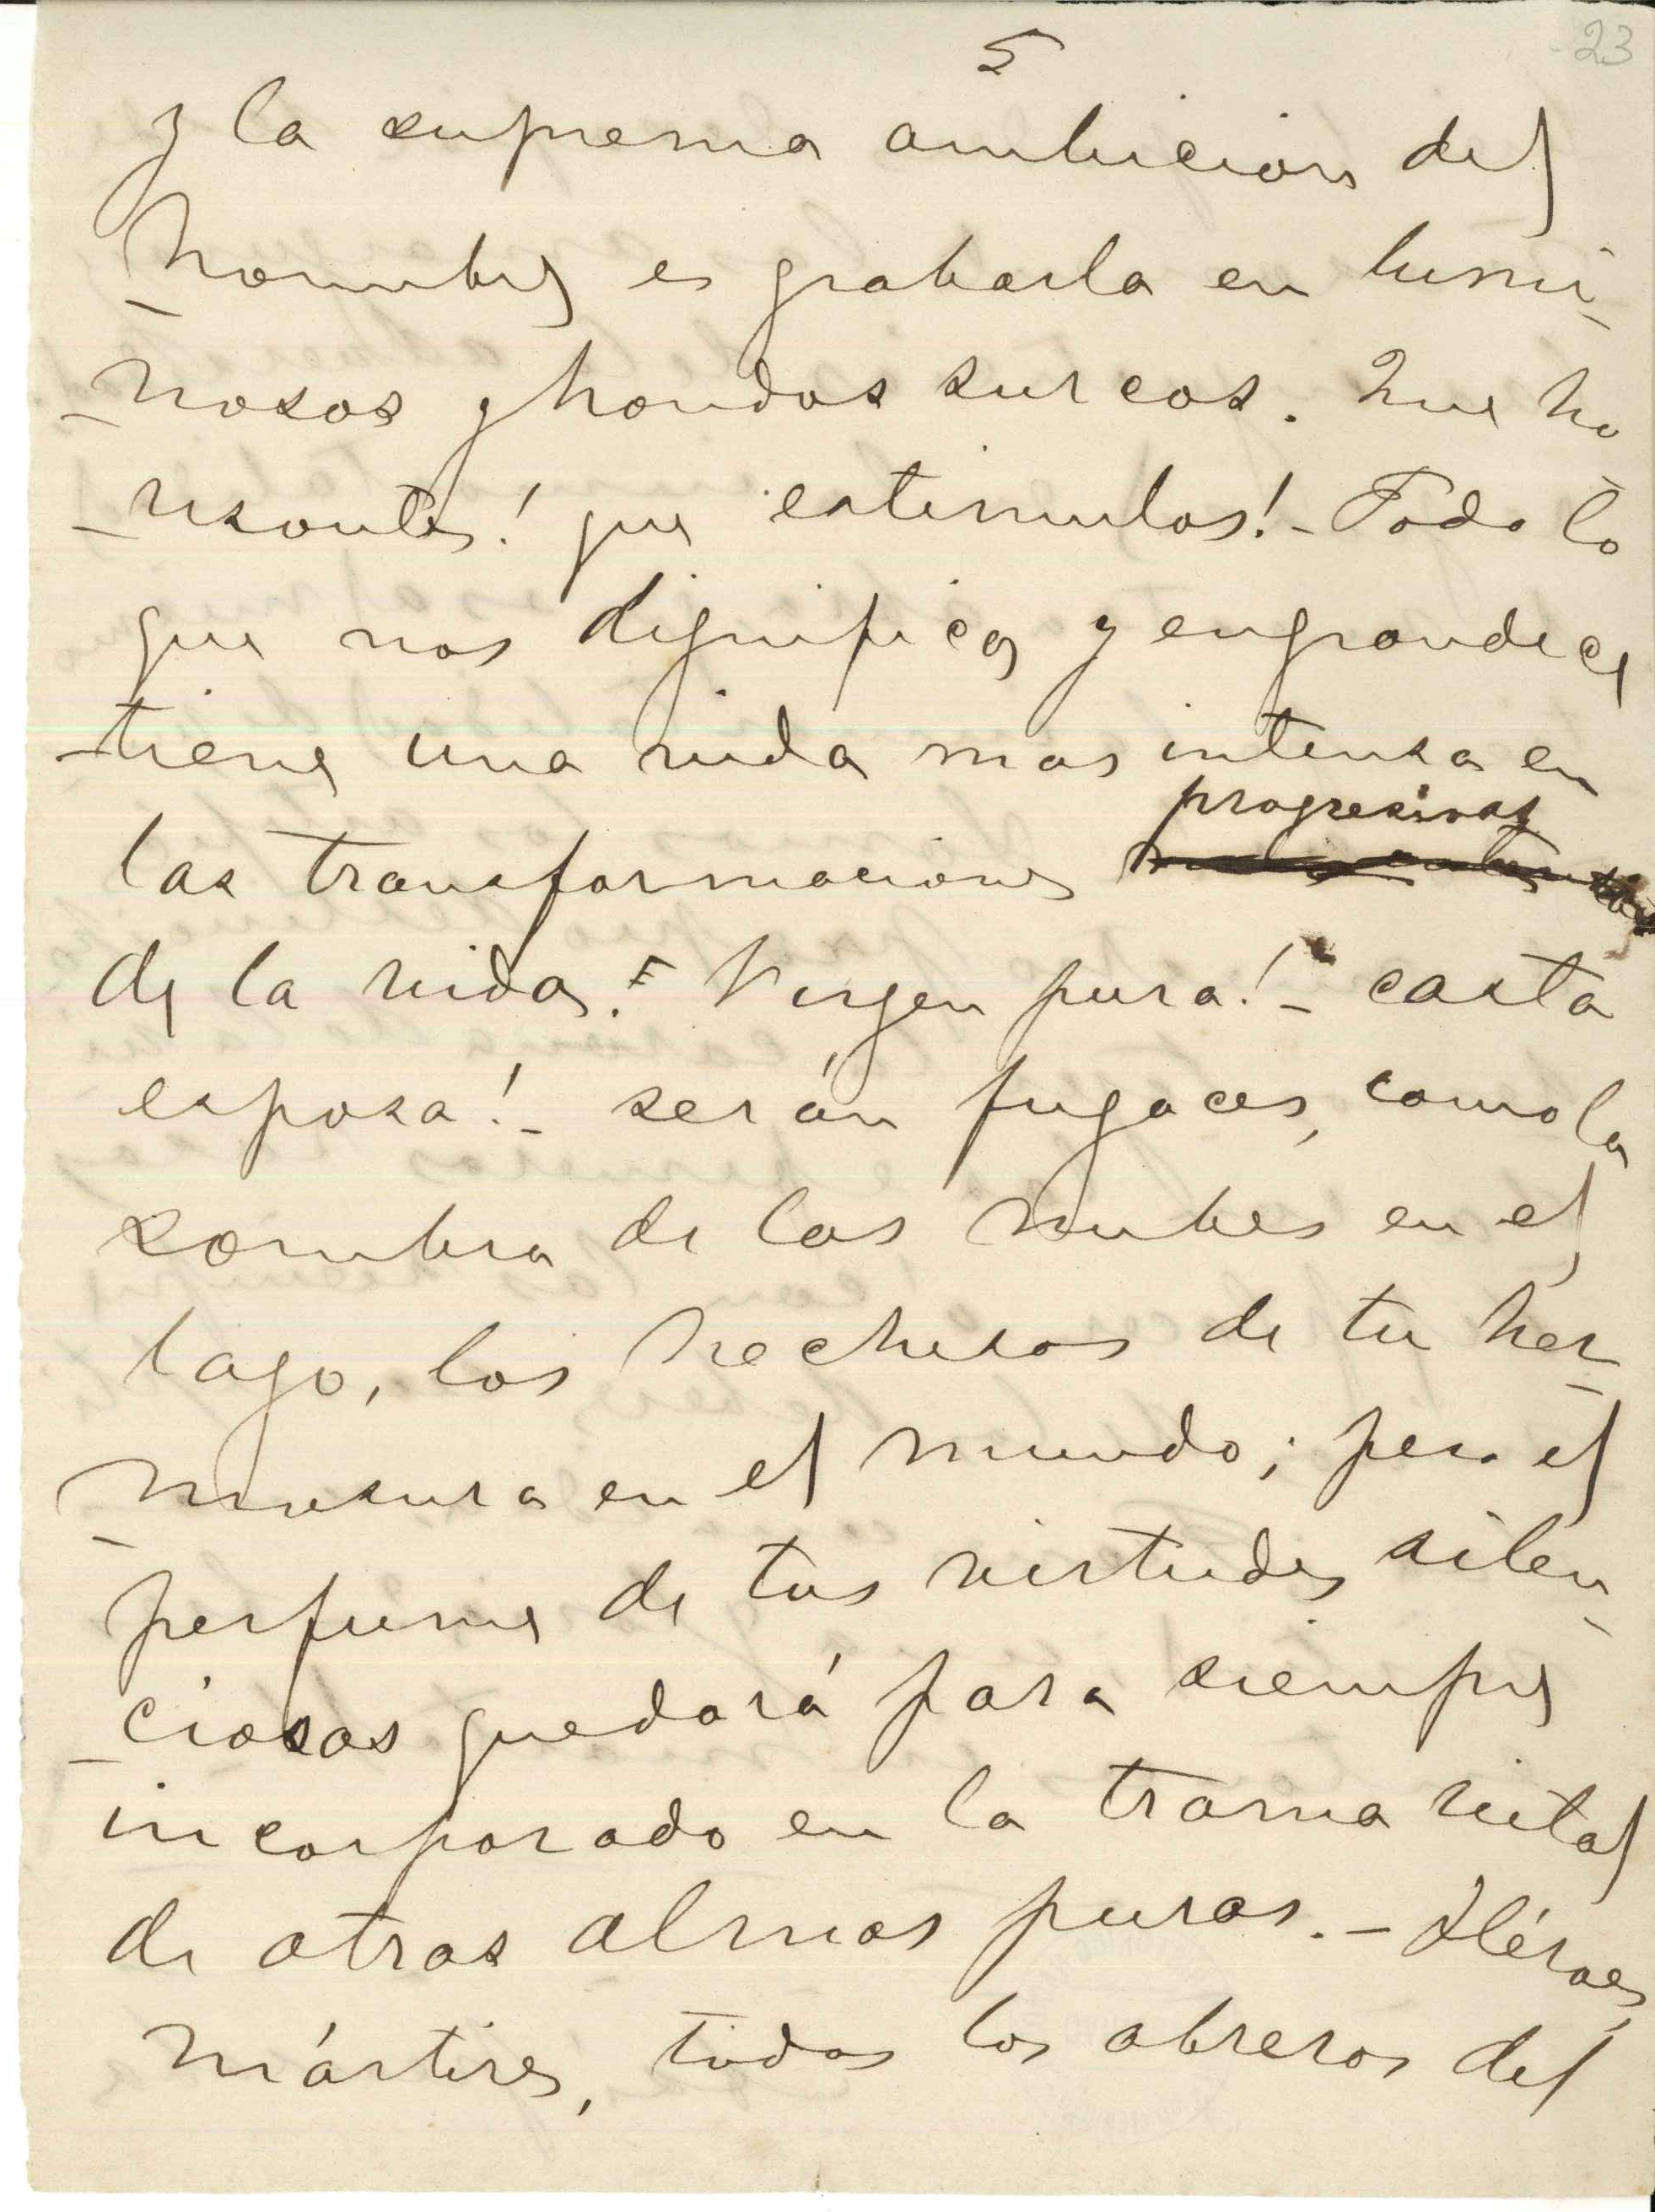 5
23
y la suprema ambicion del
hombre es grabarla en lumi-
-nosos y hondos surcos. Que ho
-risontes! que estimulos! - Todo lo
que nos dignifica y engrandece
-tiene una vida mas intensa en
progresivas
las transformaciones
de la vida. Virgen pura! - casta
esposa! - serán fugaces, como la
sombra de las nubes en el
lago, los hechisos de tu her-
-mosura en el mundo; pero el
perfume de tus virtudes silen-
-ciosas quedará para siempre
incorporado en la trama vital
de otras almas puras. - Héroes,
mártires, todos los obreros del